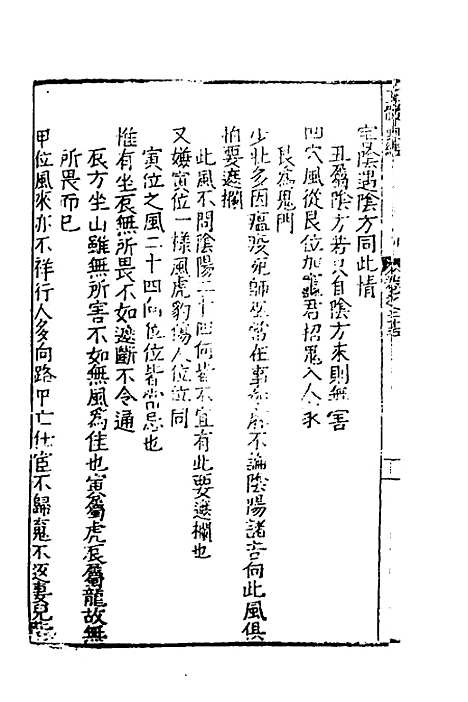 宅陰遇陰方同此情
丑屬陰方若只自陰方來則無害
凹穴風從艮位加竈君招鬼入人家
艮為鬼門
少壯多因瘟疫死師巫當在事不論陰陽諸吉向此風俱
怕要遮欄
此風不問陰陽二十四向皆不宜有此要遮欄也
又嫌寅位一樣風虎豹傷人位位同
寅位之風二十四向位位皆當忌也
惟有坐辰無所畏不如遮斷不令通
辰方坐山雖無所害不如無風為佳也寅屬虎辰屬龍故無
所畏而已
甲位風來亦不祥行人多向路中亡仕宦不歸鬼不返妻兒